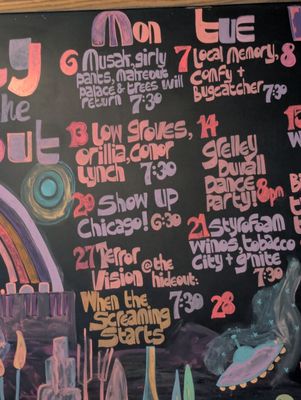 Mon
TUE
6 Musah, girly
pants, malteout
palace & trees will
return 7:30
7 Local memory,
comfy +
bugcatcher 7:30
8
13 Low groves,
orillia, conor
Lynch 7:30
14
grelley
duvall
Dance
party! 8pm
29 Show up
Chicago! 6:30
21 Styrofoam
winos, tobacco
City + gnite
7:30
27 Terror
Vision @ the
hideout:
When the 7:30
Screaming
Starts
28
the
out